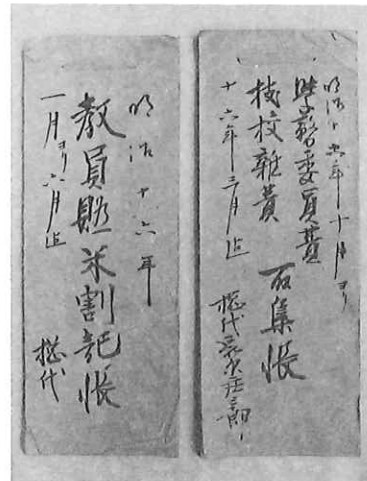 明治十五年十月ヨリ
学務委員費
枝校雑費
百集帳
十六年三月迄
惣代
明治十六年
教員賄米割記帳
一月ヨリ六月迄
惣代